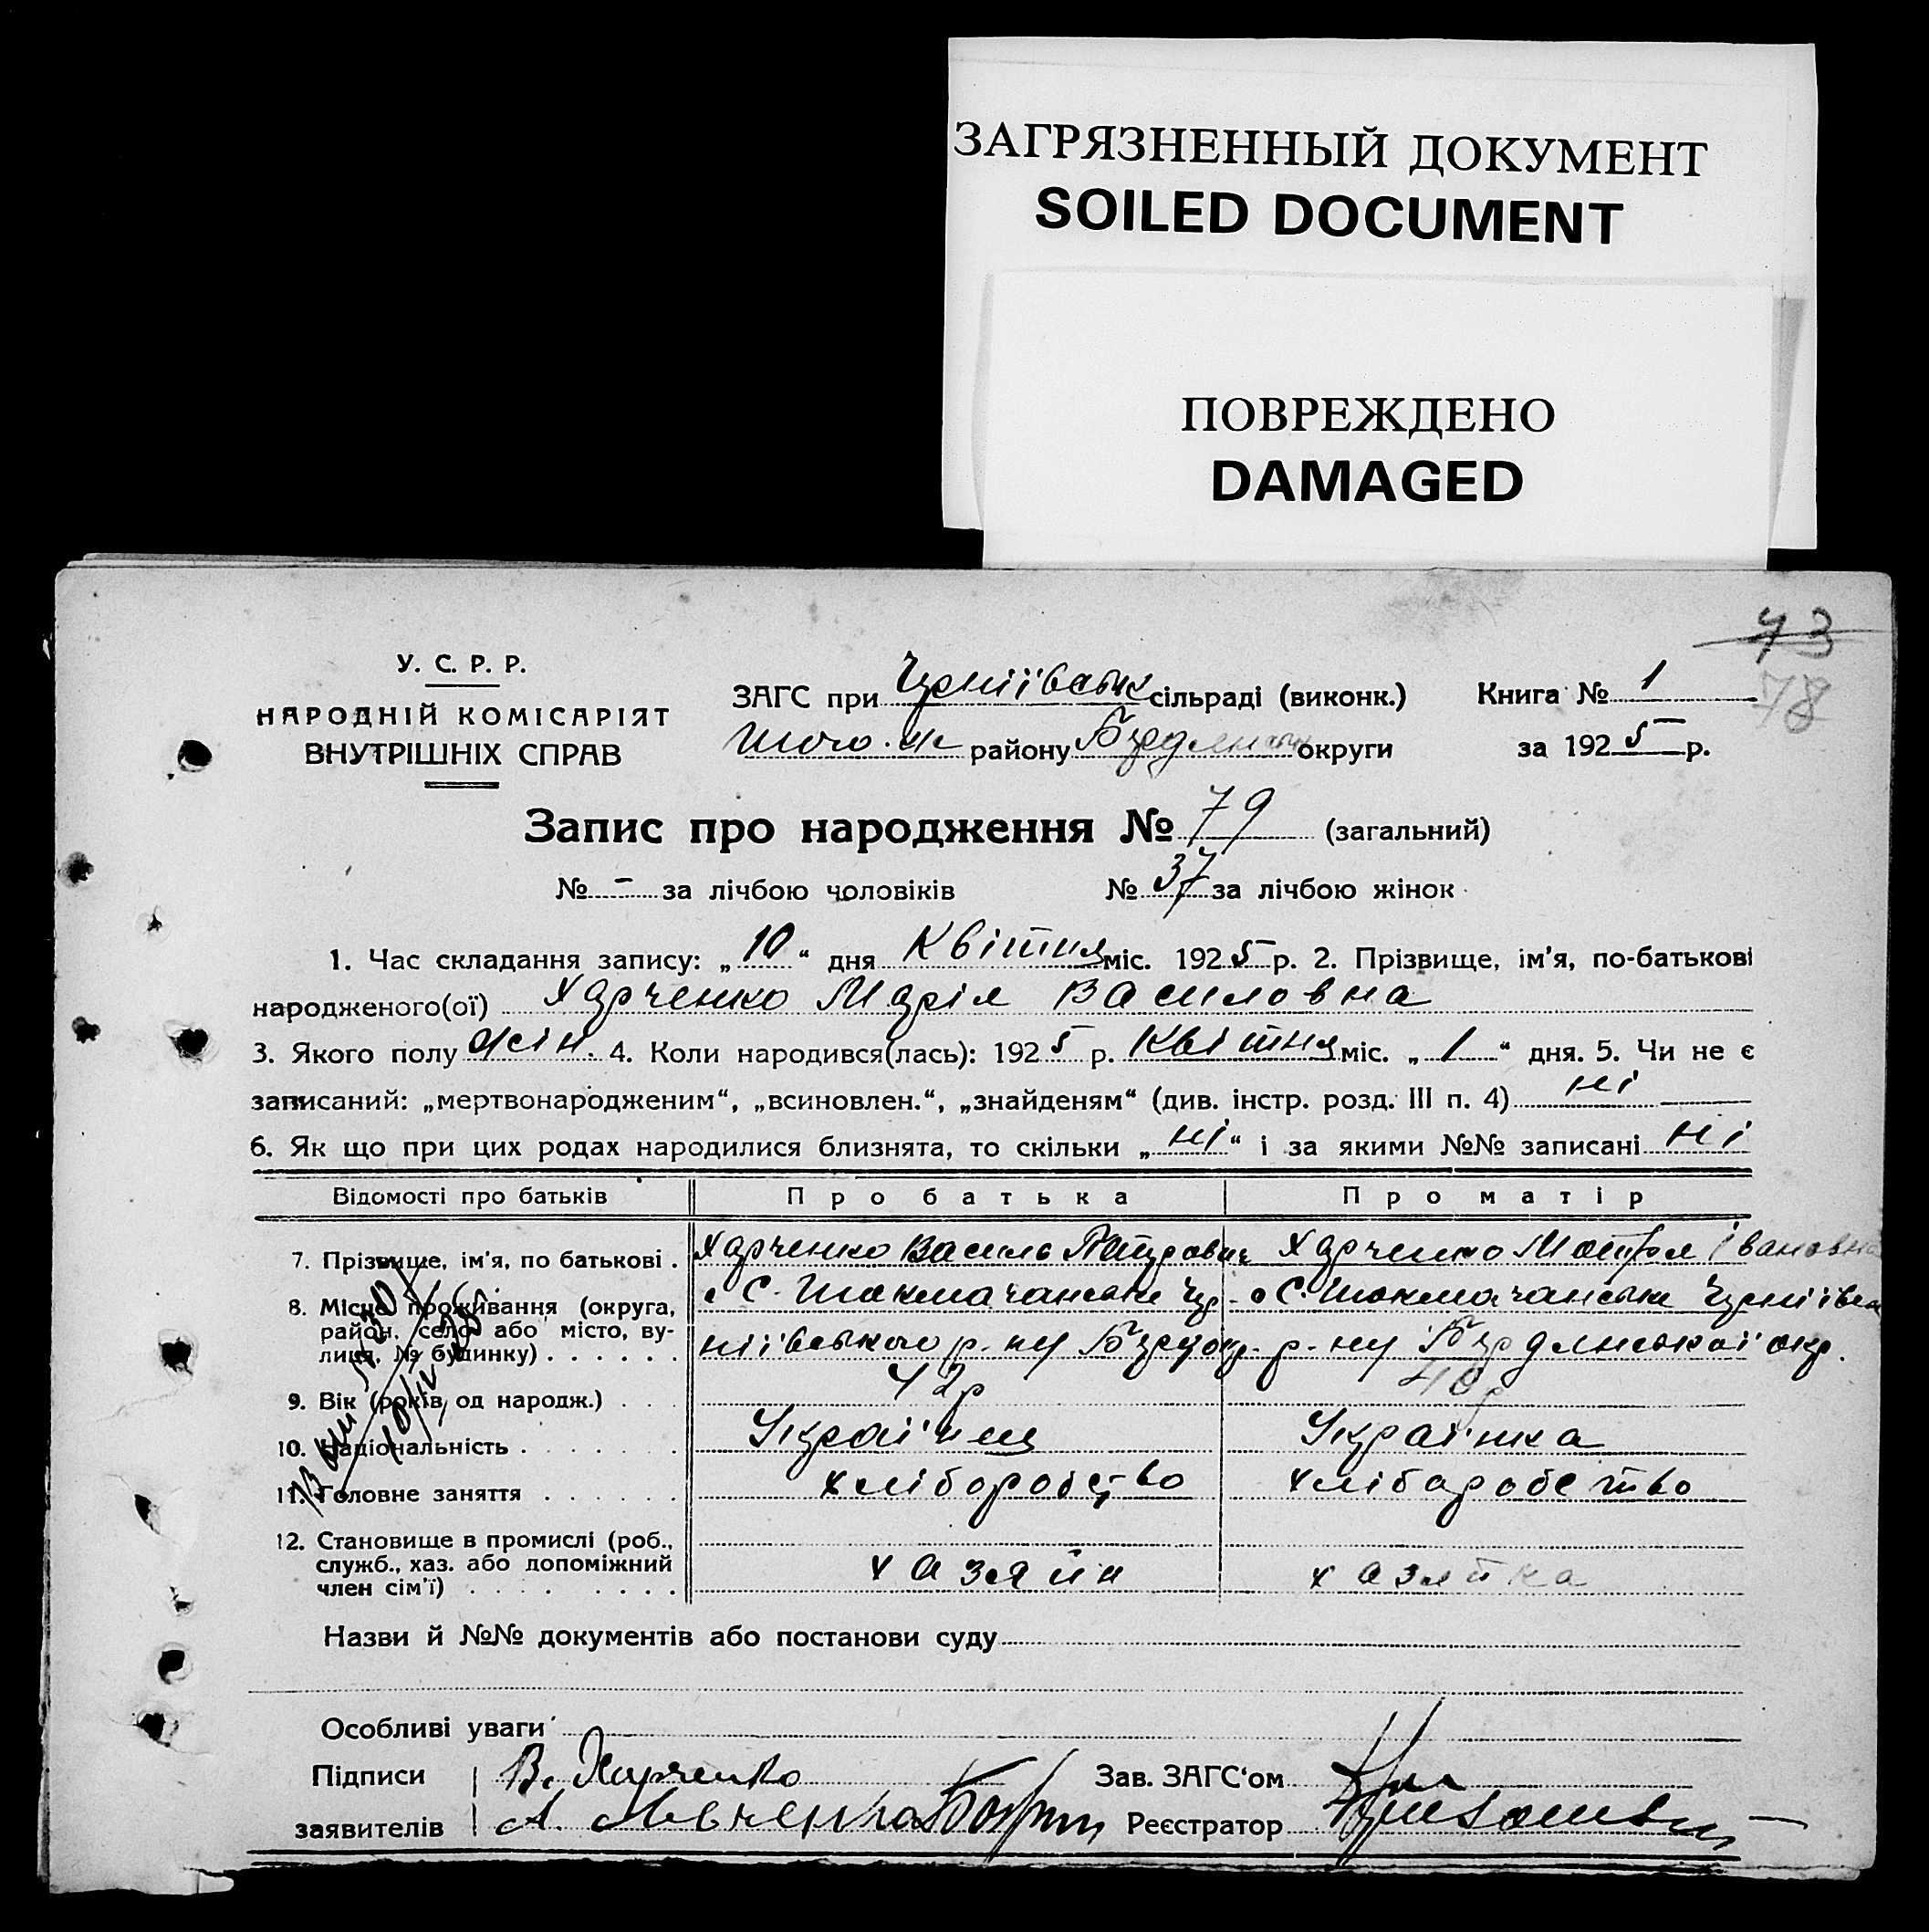 ЗАГРЯЗНЕННЫЙ ДОКУМЕНТ
SOILED DOCUMENT
ПОВРЕЖДЕНО
DAMAGED
73
78
У. С. Р. Р.
НАРОДНІЙ КОМІСАРІЯТ
ВНУТРІШНІХ СПРАВ
ЗАГС при сільраді (виконк.) Книга № 1
району округи за 1925 р.
Запис про народження № 79 (загальний)
№ - за лічбою чоловіків № 37 за лічбою жінок
1. Час складання запису: „10“ дня Квітня міс. 1925 р. 2. Прізвище, ім'я, по-батькові
народженого(ої) Харченко Марія Василовна
3. Якого полу жін. 4. Коли народився(лась): 1925 р. Квітня міс. „1“ дня. 5. Чи не є
записаний: „мертвонародженим“, „всиновлен.“, „знайденям“ (див. інстр. розд. III п. 4) ні
6. Як що при цих родах народилися близнята, то скільки „ні“ і за якими №№ записані ні
Відомості про батьків Про батька Про матір
7. Прізвище, ім'я, по батькові . Харченко Василь Харченко Мотря Івановна
8. Місце проживання (округа,
район, село або місто, ву-
лиця, № будинку) . . . . . .
р-ну р-ну Бердянської окр.
9. Вік (років од народж.) . . . 42р 40р
10. Національність . . . . . . . Українец Українка
11. Головне заняття . . . . . . хліборобство хліборобство
12. Становище в промислі (роб.,
служб., хаз. або допоміжний
член сім'ї) . . . . . . . . хазяйн хазяйка
Назви й №№ документів або постанови суду
Особливі уваги
Підписи В. Харченко Зав. ЗАГС'ом
заявителів А. Реєстратор